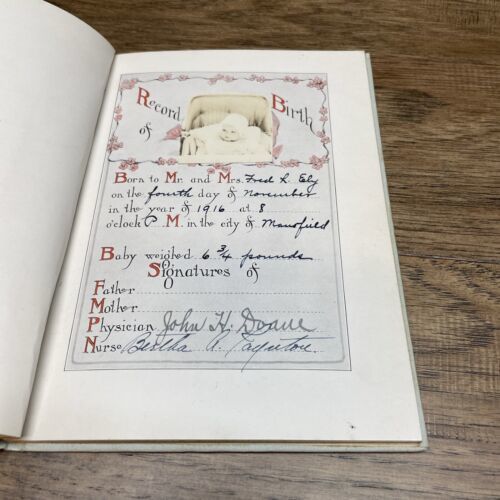 Record of Birth
Born to Mr. and Mrs. Fred R. Ely
on the fourth day of November
in the year of 1916 at 8
o'clock P. M. in the city of Mansfield
Baby weighed 6 3/4 pounds
Signatures of
Father
Mother
Physician John H. Doane
Nurse Bertha A.